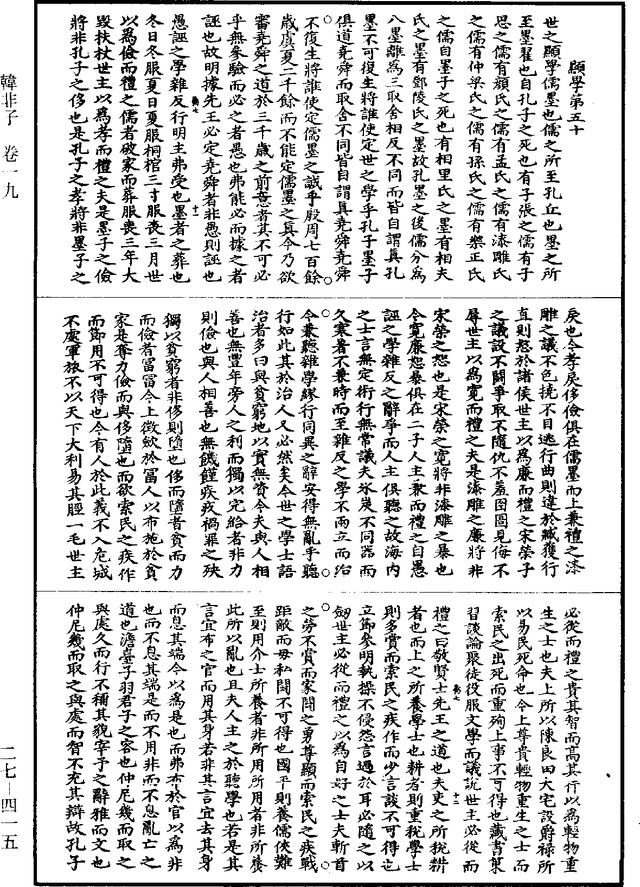 韓非子　卷一九
二七－四一五
顯學第五十
世之顯學儒墨也儒之所至孔丘也墨之所
至墨翟也自孔子之死也有子張之儒有子
思之儒有顏氏之儒有孟氏之儒有漆雕氏
之儒有仲梁氏之儒有孫氏之儒有樂正氏
之儒自墨子之死也有相里氏之墨有相夫
氏之墨有鄧陵氏之墨故孔墨之後儒分為
八墨離為三取舍相反不同而皆自謂真孔
墨不可復生將誰使定世之學乎孔子墨子
俱道堯舜而取舍不同皆自謂真堯舜堯舜
不復生將誰使定儒墨之誠乎殷周七百餘
歲虞夏二千餘而不能定儒墨之真今乃欲
審堯舜之道於三千歲之前意者其不可必
乎無參驗而必之者愚也弗能必而據之者
誣也故明據先王必定堯舜者非愚則誣也
愚誣之學雜反行明主弗受也墨者之葬也
冬日冬服夏日夏服桐棺三寸服喪三月世
以為儉而禮之儒者破家而葬服喪三年大
毀扶杖世主以為孝而禮之夫是墨子之儉
將非孔子之侈也是孔子之孝將非墨子之
戾也今孝戾侈儉俱在儒墨而上兼禮之漆
雕之議不色撓不目逃行曲則違於臧獲行
直則怒於諸侯世主以為廉而禮之宋榮子
之議設不鬪爭取不隨仇不羞囹圄見侮不
辱世主以為寬而禮之夫是漆雕之廉將非
宋榮之恕也是宋榮之寬將非漆雕之暴也
今寬廉恕暴俱在二子人主兼而禮之自愚
誣之學雜反之辭爭而人主俱聽之故海內
之士言無定術行無常議夫冰炭不同器而
久寒暑不兼時而至雜反之學不兩立而治
今兼聽雜學繆行同異之辭安得無亂乎聽
行如此其於治人又必然矣今世之學士語
治者多曰與貧窮地以實無資今夫與人相
善也無豐年旁人之利而獨以完給者非力
則儉也與人相善也無饑饉疾疚禍罪之殃
獨以貧窮者非侈則墮也侈而墮者貧而力
而儉者富今上徵斂於富人以布施於貧
家是奪力儉而與侈墮也而欲索民之疾作
而節用不可得也今有人於此義不入危城
不處軍旅不以天下大利易其脛一毛世主
必從而禮之貴其智而高其行以為輕物重
生之士也夫上所以陳良田大宅設爵祿所
以易民死命也今上尊貴輕物重生之士而
索民之出死而重殉上事不可得也藏書策
習談論聚徒役服文學而議說世主必從而
禮之曰敬賢士先王之道也夫吏之所稅耕
者也而上之所養學士也耕者則重稅學士
則多賞而索民之疾作而少言談不可得也
立節參明執操不侵怨言過於耳必隨之以
劒世主必從而禮之以為自好之士夫斬首
之勞不賞而家鬪之勇尊顯而索民之疾戰
距敵而毋私鬪不可得也國平則養儒俠難
至則用介士所養者非所用所用者非所養
此所以亂也且夫人主之於聽學也若是其
言宜布之官而用其身若非其言宜去其身
而息其端今以為是也而弗布於官以為非
也而不息其端是而不用非而不息亂亡之
道也澹臺子羽君子之容也仲尼幾而取之
與處久而行不稱其貌宰予之辭雅而文也
仲尼幾而取之與處而智不充其辯故孔子